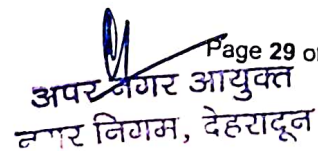 Page 29 of
अपर नगर आयुक्त
नगर निगम, देहरादून